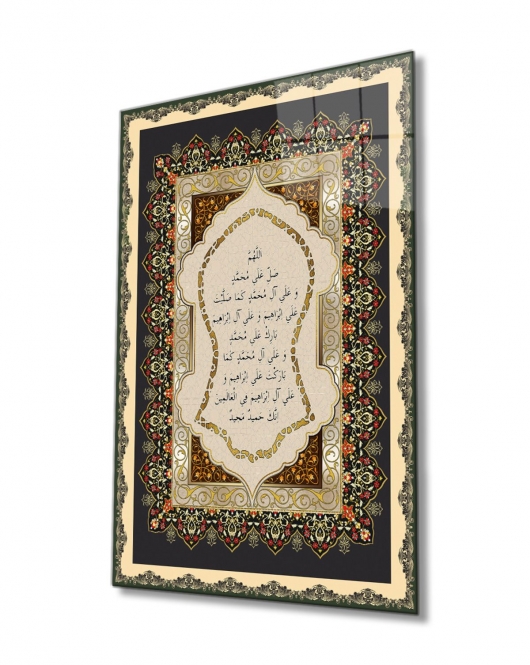 اللّٰهُمَّ
صَلِّ عَلَى مُحَمَّدٍ
وَ عَلَى آلِ مُحَمَّدٍ كَمَا صَلَّيْتَ
عَلَى اِبْرَاهِيمَ وَ عَلَى آلِ اِبْرَاهِيمَ
بَارِكْ عَلَى مُحَمَّدٍ
وَ عَلَى آلِ مُحَمَّدٍ كَمَا
بَارَكْتَ عَلَى اِبْرَاهِيمَ وَ
عَلَى آلِ اِبْرَاهِيمَ فِي الْعَالَمِينَ
اِنَّكَ حَمِيدٌ مَجِيدٌ